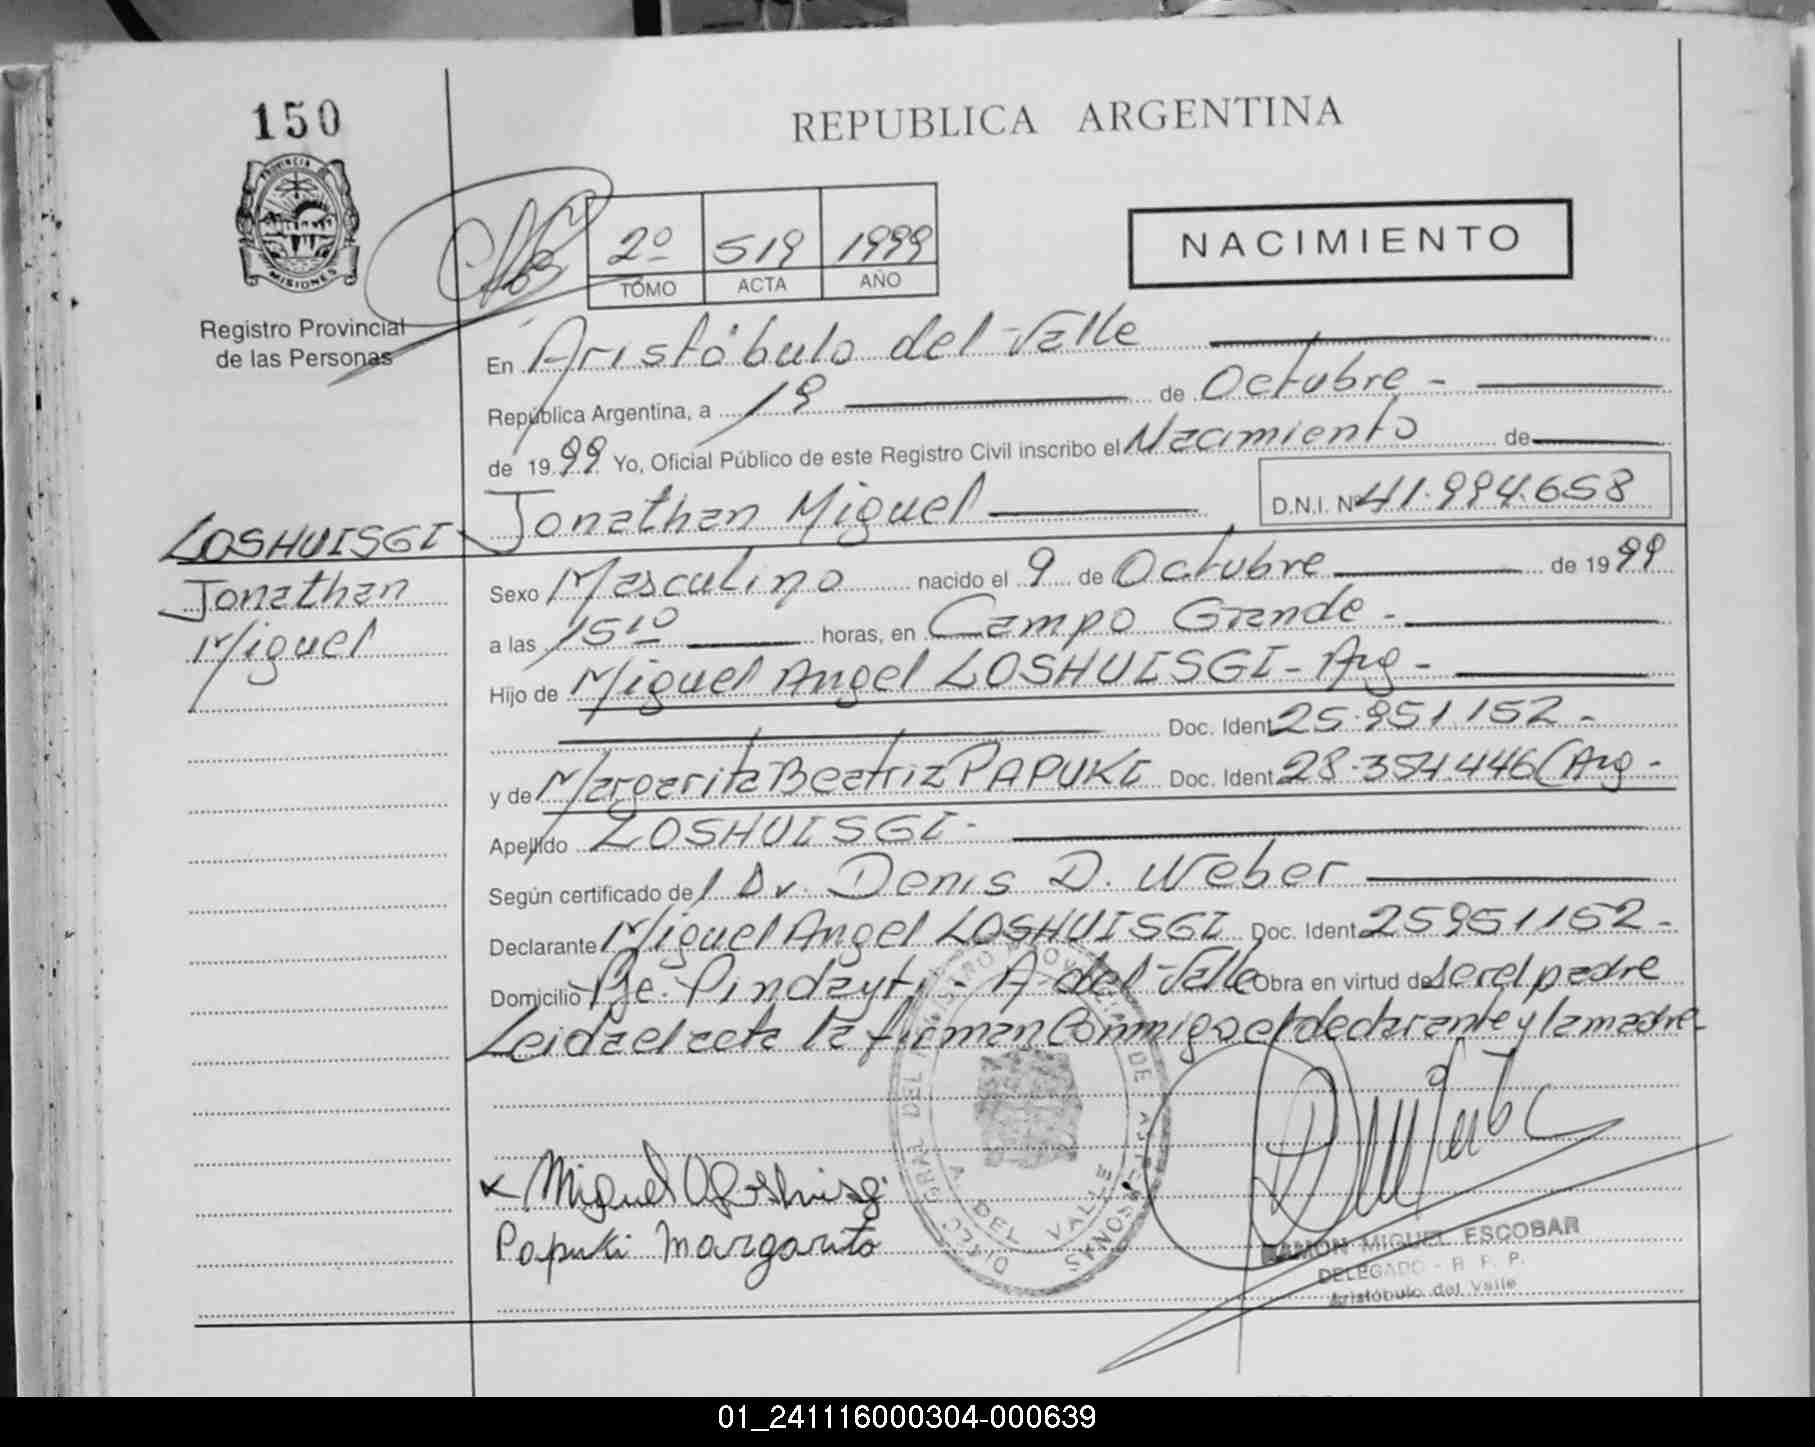 150
REPUBLICA ARGENTINA
PROVINCIA DE
MISIONES
Registro Provincial
de las Personas
2º 519 1999
TOMO ACTA AÑO
NACIMIENTO
En Aristóbulo del Valle
República Argentina, a 19 de Octubre -
de 1999 Yo, Oficial Público de este Registro Civil inscribo el Nacimiento de
Jonathan Miguel D.N.I. Nº 41.994.658
LOSHUISGI
Jonathan
Miguel
Sexo Masculino nacido el 9 de Octubre de 1999
a las 15 10 horas, en Campo Grande -
Hijo de Miguel Angel LOSHUISGI - Arg -
Doc. Ident 25.951.152 -
y de Margarita Beatriz PAPUKI Doc. Ident 28.354.446 (Arg -
Apellido LOSHUISGI -
Según certificado del Dr. Denis D. Weber
Declarante Miguel Angel LOSHUISGI Doc. Ident 25951152 -
Domicilio Pje. Pindayti - A del Valle Obra en virtud de ser el padre
Leida el acta la firman Conmigo el declarante y la madre -
A. DEL VALLE
x Miguel A Loshuisgi
Papuki Margarita
RAMON MIGUEL ESCOBAR
DELEGADO - R. P. P.
Aristóbulo del Valle
01_241116000304-000639